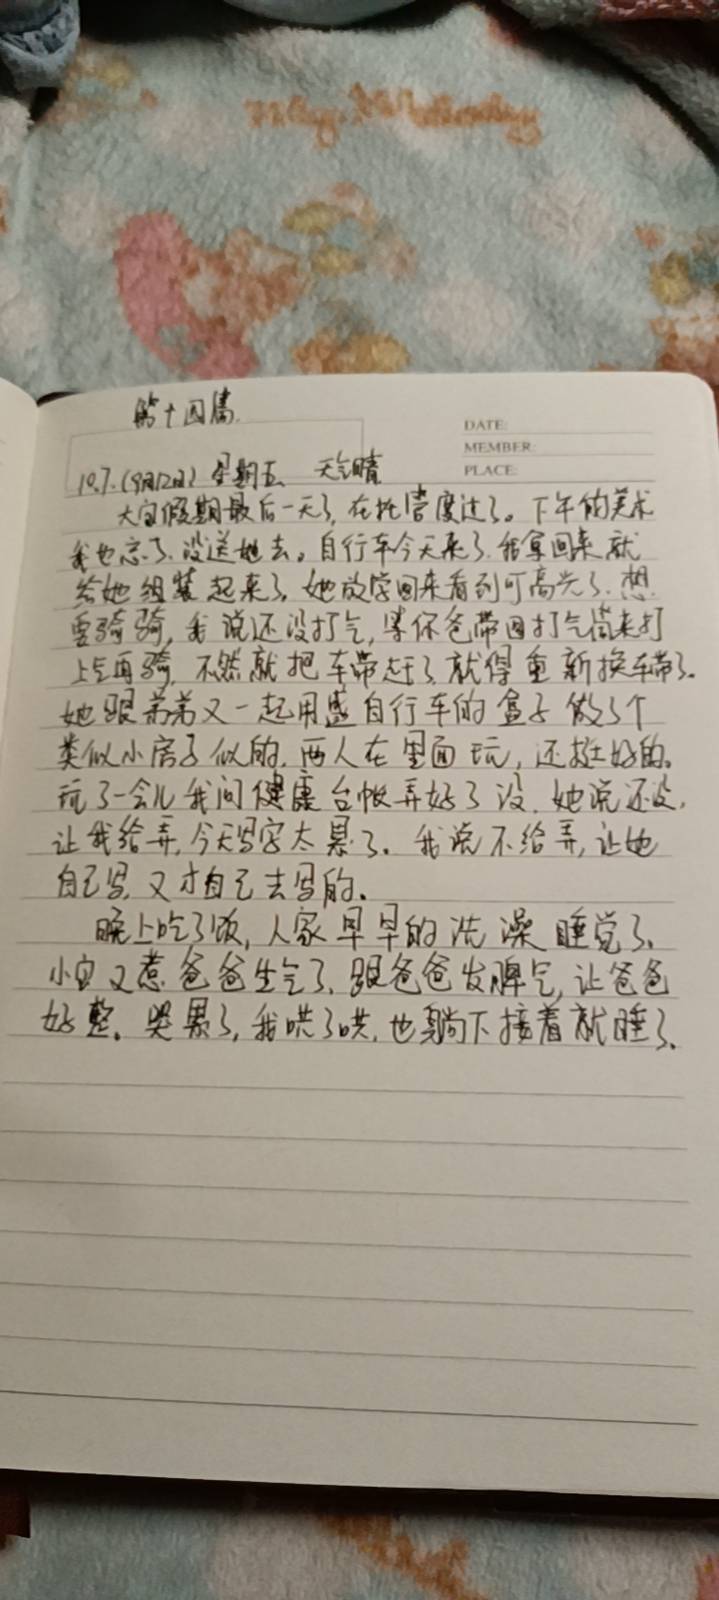 My Melody
第十四篇.
DATE:
MEMBER:
PLACE:
10.7.(9月12日) 星期五 天气晴
大宝假期最后一天了,在托管度过了。下午的美术
我也忘了、没送她去。自行车今天来了.我拿回来就
给她组装起来了,她放学回来看到可高兴了.想
要骑骑,我说还没打气,等你爸带回打气筒来打
上气再骑,不然就把车带赶了,就得重新换车带了.
她跟弟弟又一起用盛自行车的盒子做了个
类似小房子似的.两人在里面玩,还挺好的。
玩了一会儿我问健康台帐弄好了没.她说还没,
让我给弄,今天写字太累了。我说不给弄,让她
自己写,又才自己去写的。
晚上吃了饭,人家早早的洗澡睡觉了、
小宝又惹爸爸生气了、跟爸爸发脾气,让爸爸
好整。哭累了,我哄了哄,也躺下接着就睡了.